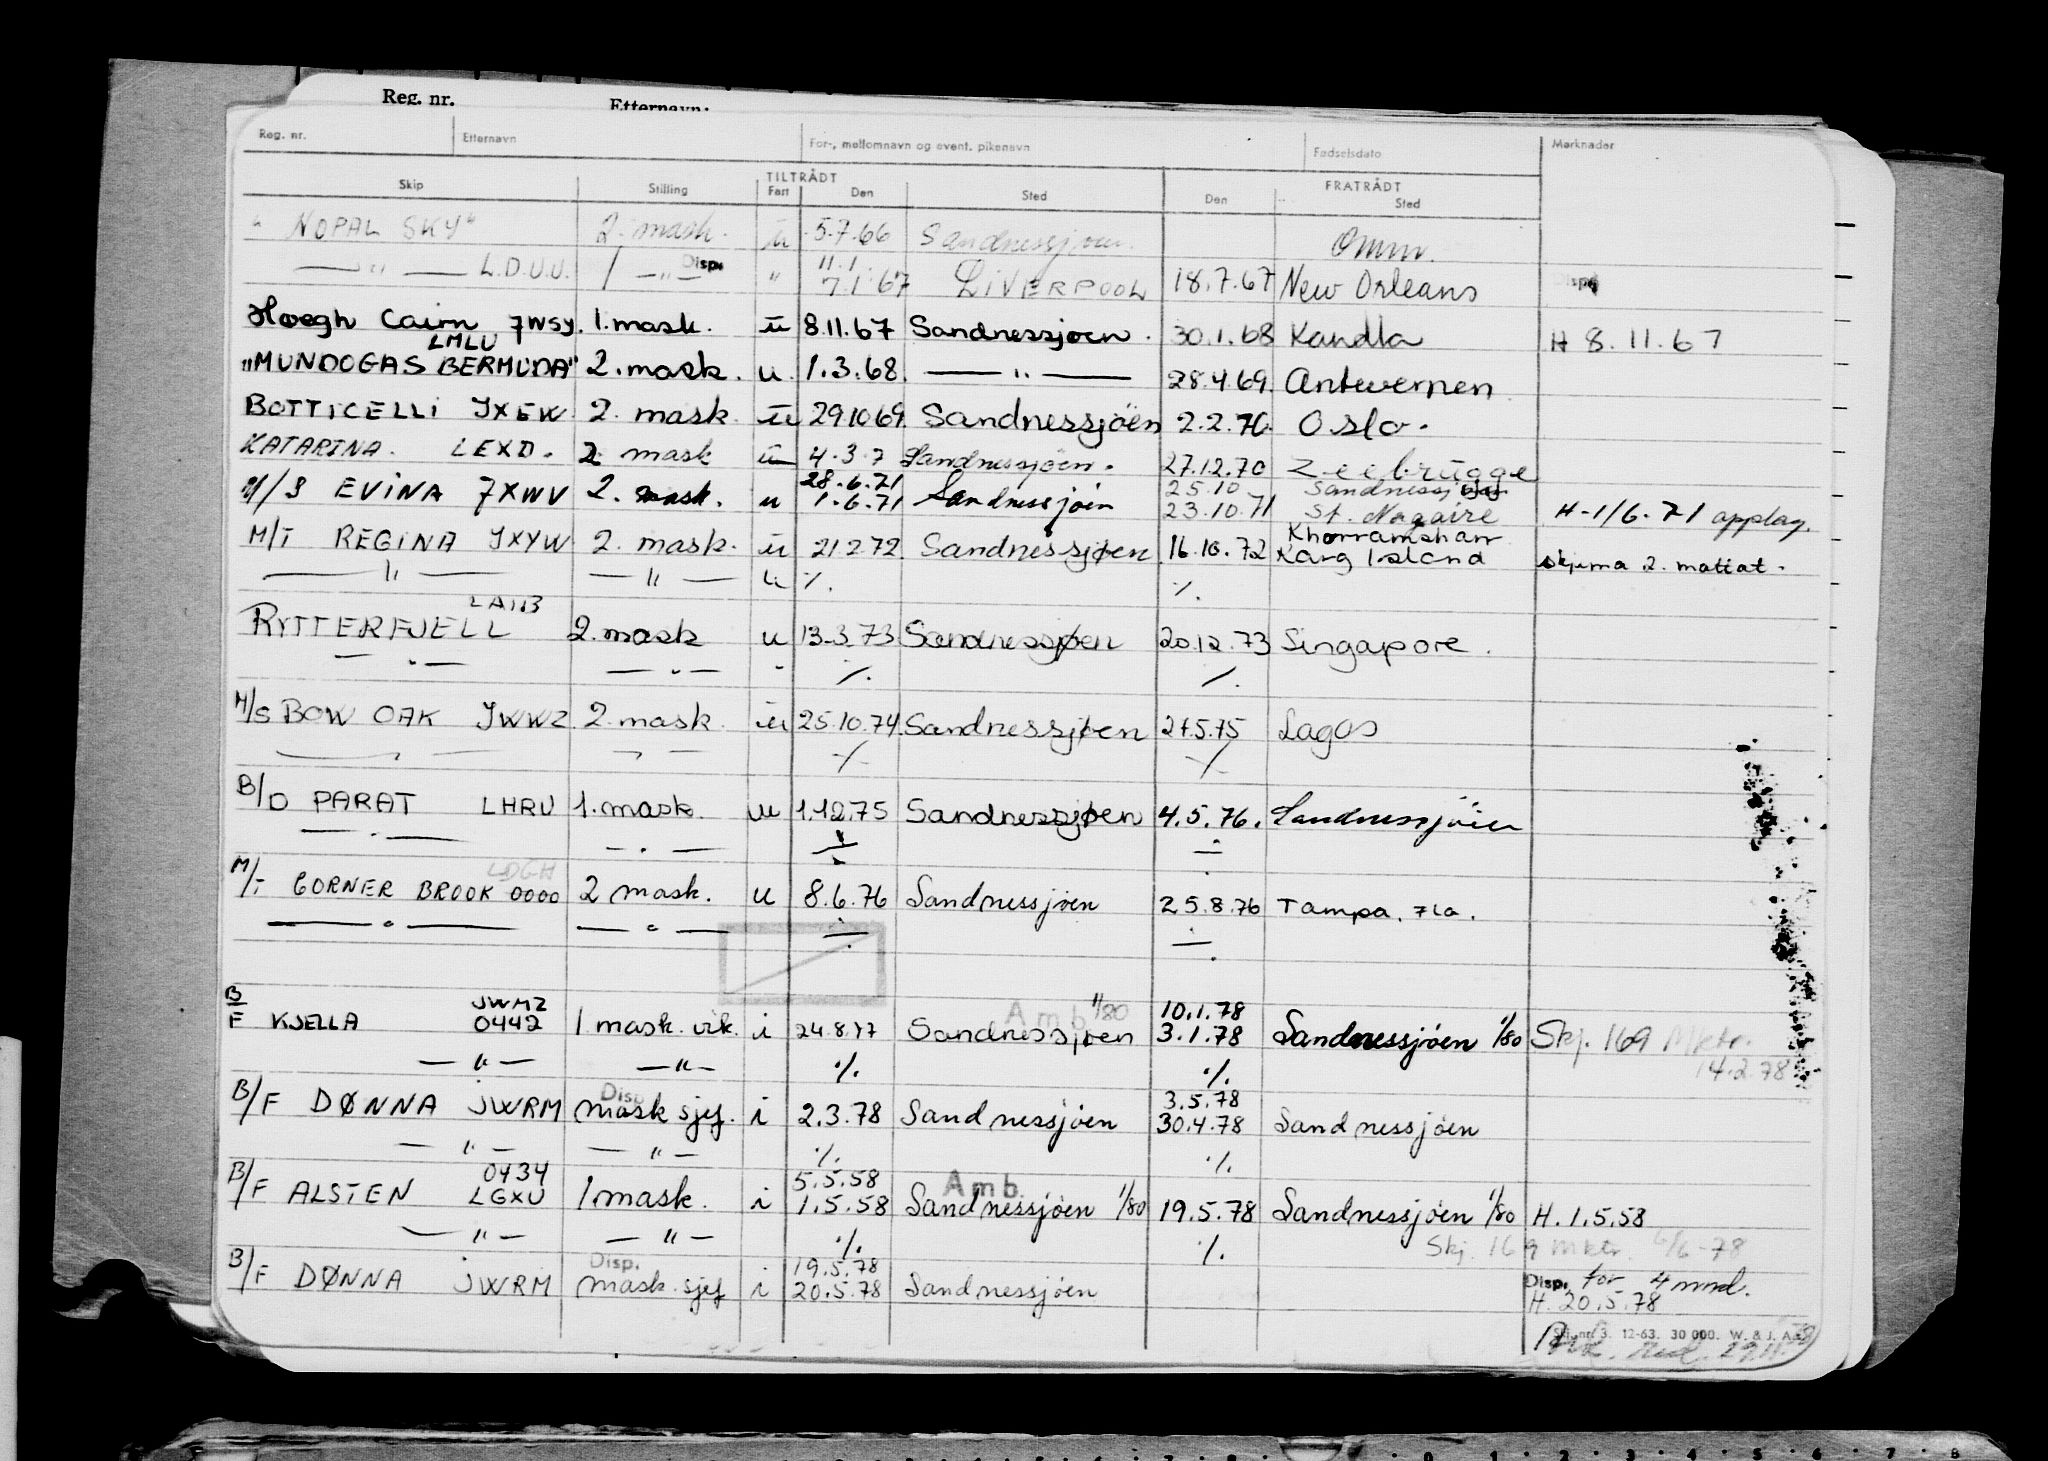 Reg. nr. Etternavn:
Reg. nr. Etternavn For-, mellomnavn og event. pikenavn Fødselsdato Merknader
TILTRÅDT FRATRÅDT
Skip Stilling Fart Den Sted Den Sted
" NOPAL SKY" 2. mask. u 5.7.66 Sandnessjøen. Omm.
— " — L.D.U.U. 1 — " — Disp. " 11.1 7.1.67 LIVERPOOL 18.7.67 New Orleans Disp.
Hoegh Cairn JWSY. 1. mask. u 8.11.67 Sandnessjoen. 30.1.68 Kandla H 8.11.67
LMLU
"MUNDOGAS BERMUDA" 2. mask. u. 1.3.68. — " — 28.4.69. Antwerpen
BOTTICELLI JXEW 2. mask. u 29.10.69. Sandnessjöen 2.2.70. Oslo.
KATARINA. LEXD. 2 mask u 4.3.7 Sandnessjöen. 27.12.70 Zeebrügge
28.6.71 25.10 Sandnessj
M/S EVINA JXWV 2. mask. u 1.6.71 Sandnessjöen 23.10.71 St. Nazaire H-1/6.71 opplag.
Khorramshar
M/T REGINA JXYW 2. mask. u 21.2.72 Sandnessjøen 16.10.72 Karg Island skjema 2. mottat.
— " — — " — u ·/. ·/.
LAIB
RYTTERFJELL 2. mask u 13.3.73 Sandnessjøen 20.12.73 Singapore.
— " — — " — " ·/. ·/.
M/S BOW OAK JWWZ 2. mask. u 25.10.74. Sandnessjøen 27.5.75 Lagos
— " — — " — ·/. ·/.
B/D PARAT LHRU 1. mask. u 1.12.75 Sandnessjøen 4.5.76. Sandnessjöen
— " — — " — ·/. ·/.
LDGH
M/T CORNER BROOK 0000 2 mask. u 8.6.76 Sandnessjöen 25.8.76 Tampa, Fla.
— " — — " — ·/. ·/.
JWMZ Amb 1/80 10.1.78
B/F KJELLA 0442 1 mask. vik. i 24.8.77 Sandnessjøen 3.1.78 Sandnessjöen 1/80 Skj. 169 Mktr.
— " — — " — ·/. ·/. 14.2.78
Disp 3.5.78
B/F DØNNA JWRM mask sjef. i 2.3.78 Sandnessjöen 30.4.78 Sandnessjöen
— " — — " — ·/. ·/.
0434 5.5.58 Amb.
B/F ALSTEN LGXU 1 mask. i 1.5.58 Sandnessjöen 1/80 19.5.78 Sandnessjöen 1/80 H. 1.5.58
— " — — " — ·/. ·/. Skj. 169 mktr. 6/6-78
Disp. 19.5.78 Disp. for 4 mnd.
B/F DØNNA JWRM mask. sjef i 20.5.78 Sandnessjöen H. 20.5.78
Skj. nr. 3. 12-63. 30 000. W. & J. A/S